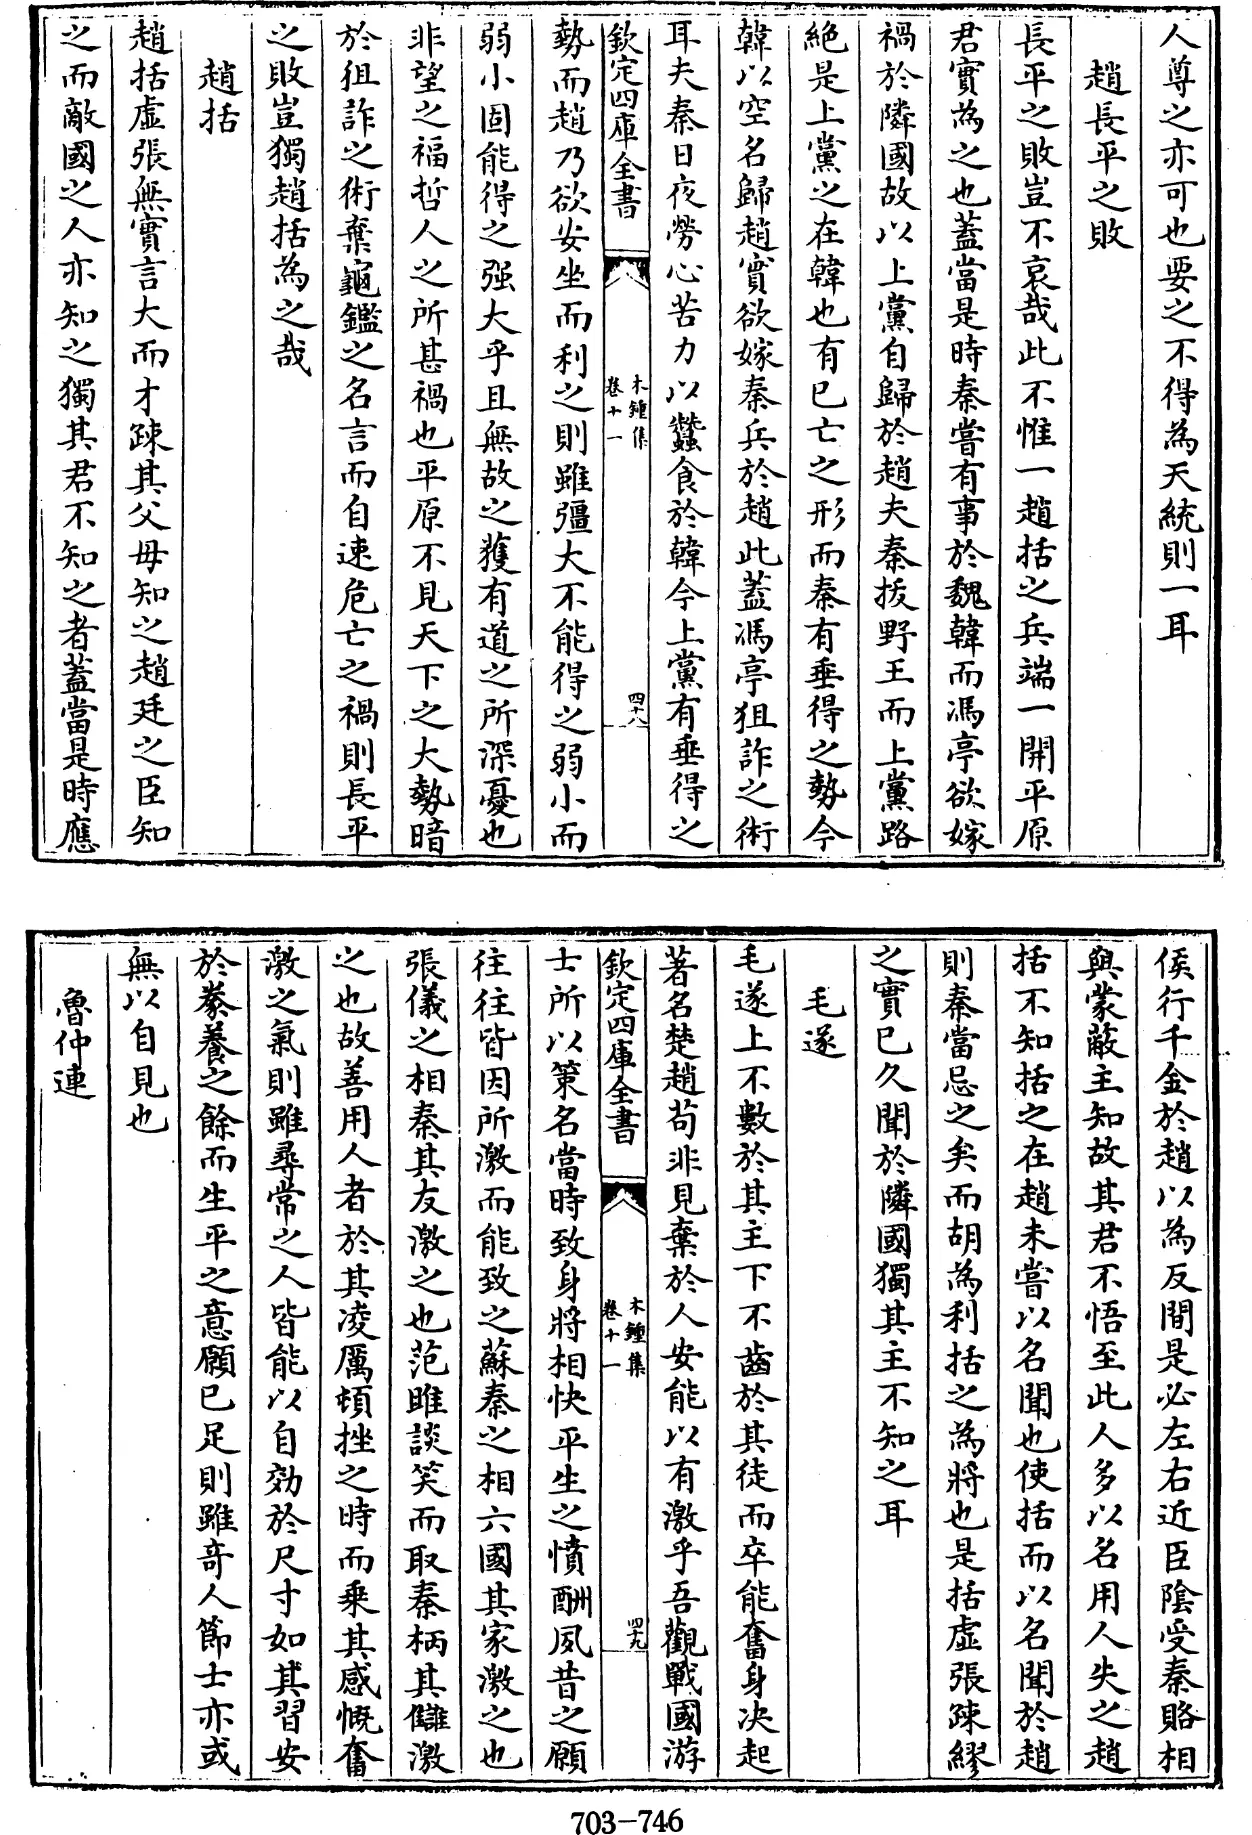 人尊之亦可也要之不得為天統則一耳
趙長平之敗
長平之敗豈不哀哉此不惟一趙括之兵端一開平原
君實為之也蓋當是時秦嘗有事於魏韓而馮亭欲嫁
禍於隣國故以上黨自歸於趙夫秦拔野王而上黨路
絶是上黨之在韓也有已亡之形而秦有垂得之勢今
韓以空名歸趙實欲嫁秦兵於趙此蓋馮亭狙詐之術
耳夫秦日夜勞心苦力以蠶食於韓今上黨有垂得之
欽定四庫全書
木鍾集
卷十一
四十八
勢而趙乃欲安坐而利之則雖彊大不能得之弱小而
弱小固能得之强大乎且無故之獲有道之所深憂也
非望之福哲人之所甚禍也平原不見天下之大勢暗
於狙詐之術棄龜鑑之名言而自速危亡之禍則長平
之敗豈獨趙括為之哉
趙括
趙括虚張無實言大而才疎其父母知之趙廷之臣知
之而敵國之人亦知之獨其君不知之者蓋當是時應
侯行千金於趙以為反間是必左右近臣陰受秦賂相
與蒙蔽主知故其君不悟至此人多以名用人失之趙
括不知括之在趙未嘗以名聞也使括而以名聞於趙
則秦當忌之矣而胡為利括之為將也是括虚張疎繆
之實已久聞於隣國獨其主不知之耳
毛遂
毛遂上不數於其主下不齒於其徒而卒能奮身决起
著名楚趙苟非見棄於人安能以有激乎吾觀戰國游
欽定四庫全書
木鍾集
卷十一
四十九
士所以策名當時致身將相快平生之憤酬夙昔之願
往往皆因所激而能致之蘇秦之相六國其家激之也
張儀之相秦其友激之也范雎談笑而取秦柄其讎激
之也故善用人者於其凌厲頓挫之時而乘其感慨奮
激之氣則雖尋常之人皆能以自効於尺寸如其習安
於豢養之餘而生平之意願已足則雖奇人節士亦或
無以自見也
魯仲連
703-746